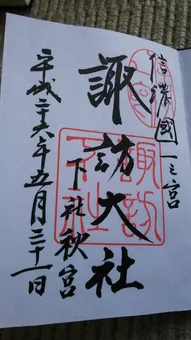 信濃國一之宮
諏訪大社
下社秋宮
平成二十六年五月三十一日